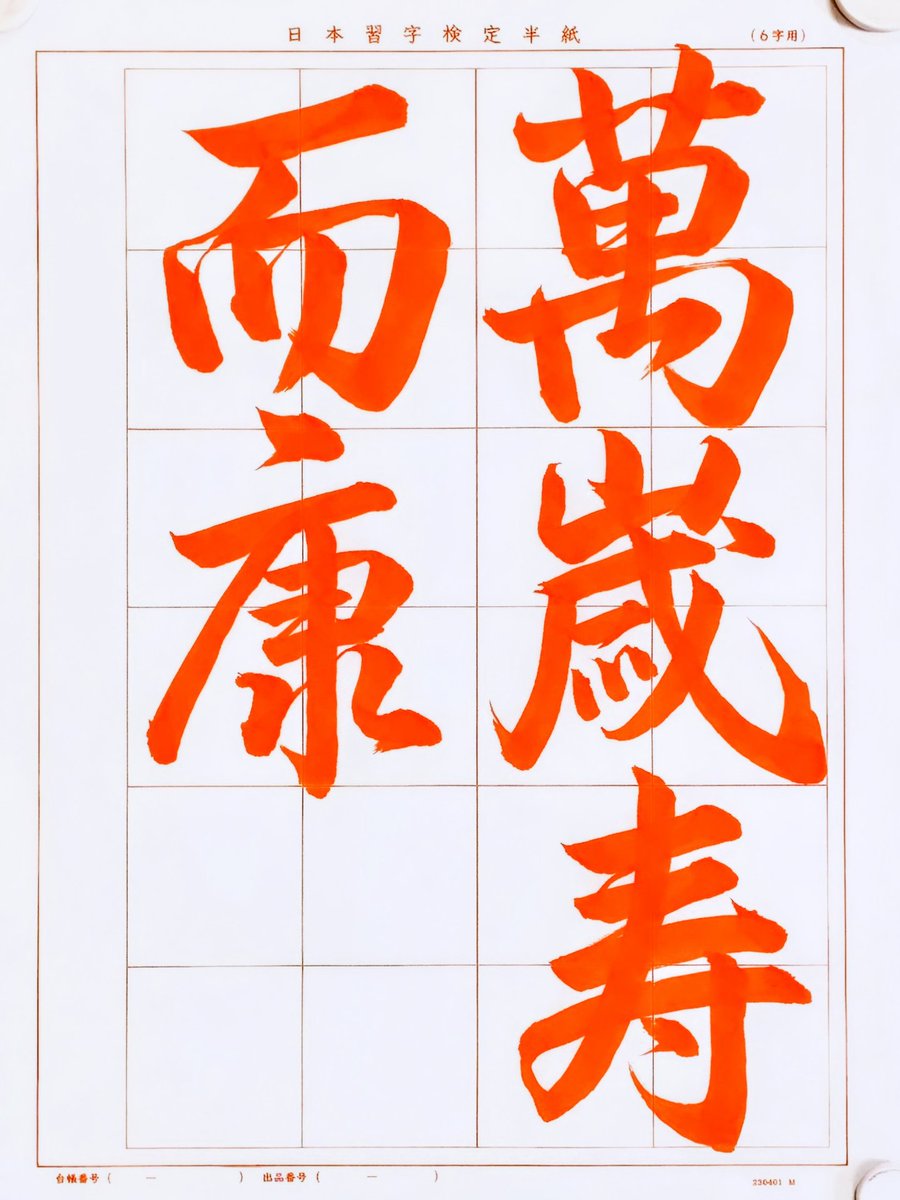 日本習字検定半紙
(6字用)
萬歳寿
而康
台帳番号(　ー　)　出品番号(　ー　)
230401 M